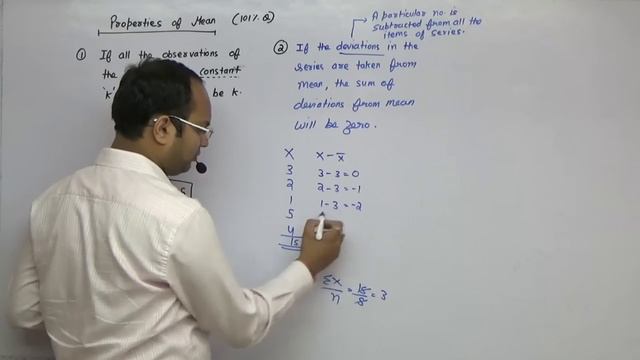 Properties of Mean (101% Q)
① If all the observations of
the constant
'k' be k.
A particular no. is
subtracted from all the
items of series.
② If the deviations in the
series are taken from
mean, the sum of
deviations from mean
will be zero.
X X - X̅
3 3 - 3 = 0
2 2 - 3 = -1
1 1 - 3 = -2
5
4
15
ΣX/n = 15/5 = 3